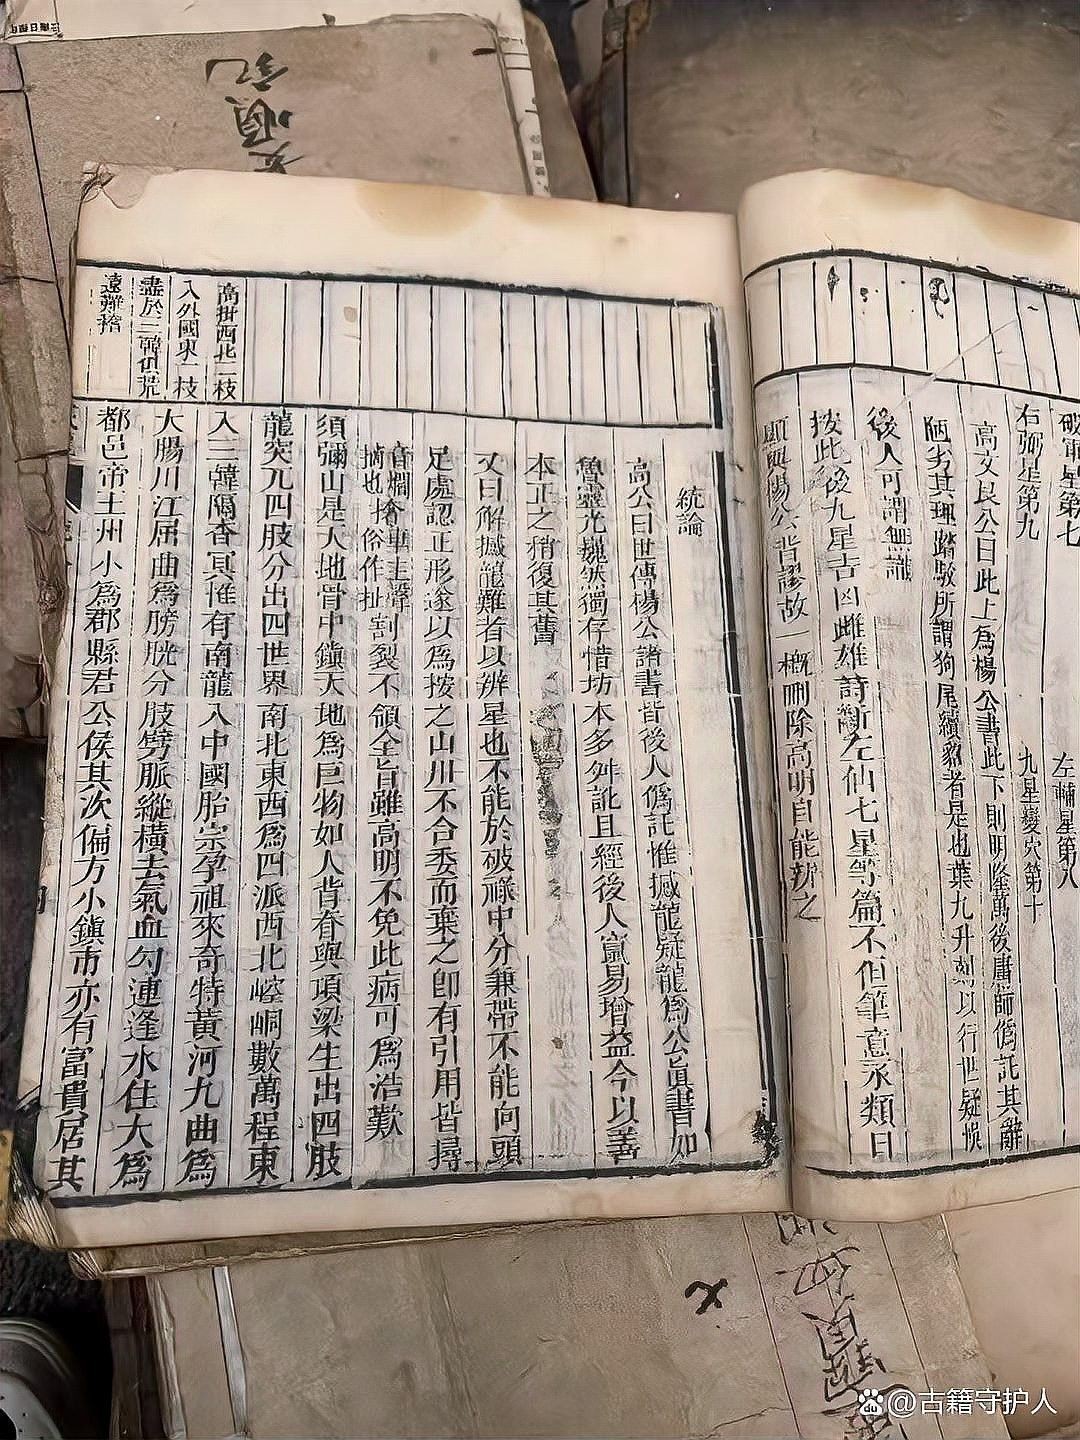 破軍星第七
左輔星第八
右弼星第九
九星變穴第十
高文良公曰此上爲楊公書此下則明隆萬後庸師僞託其辭
陋劣其理踳駁所謂狗尾續貂者是也葉九升刻以行世疑悞
後人可謂無識
按此後九星吉凶雌雄詩斷左仙七星等篇不但筆意永類日
顯與楊公背謬故一概刪除高明自能辨之
統論
高公曰世傳楊公諸書皆後人僞託惟撼龍疑龍爲公眞書如
魯靈光巍然獨存惜坊本多舛訛且經後人竄易增益今以善
本正之稍復其舊
又曰解撼龍難者以辨星也不能於破祿中分兼帶不能向頭
足處認正形遂以爲按之山川不合委而棄之卽有引用皆尋
摘也俗作扯割裂不領全旨雖高明不免此病可爲浩歎
須彌山是天地骨中鎭天地爲巨物如人背脊與項梁生出四肢
龍突兀四肢分出四世界南北東西爲四派西北崆峒數萬程東
入三韓隔杳冥惟有南龍入中國胎宗孕祖來奇特黃河九曲爲
大腸川江屈曲爲膀胱分肢劈脈縱橫去氣血勾連逢水住大爲
都邑帝王州小爲郡縣君公侯其次偏方小鎭市亦有富貴居其
高拱西北二枝
入外國東一枝
盡於三韓俱荒
遠難稽
順記
@古籍守护人